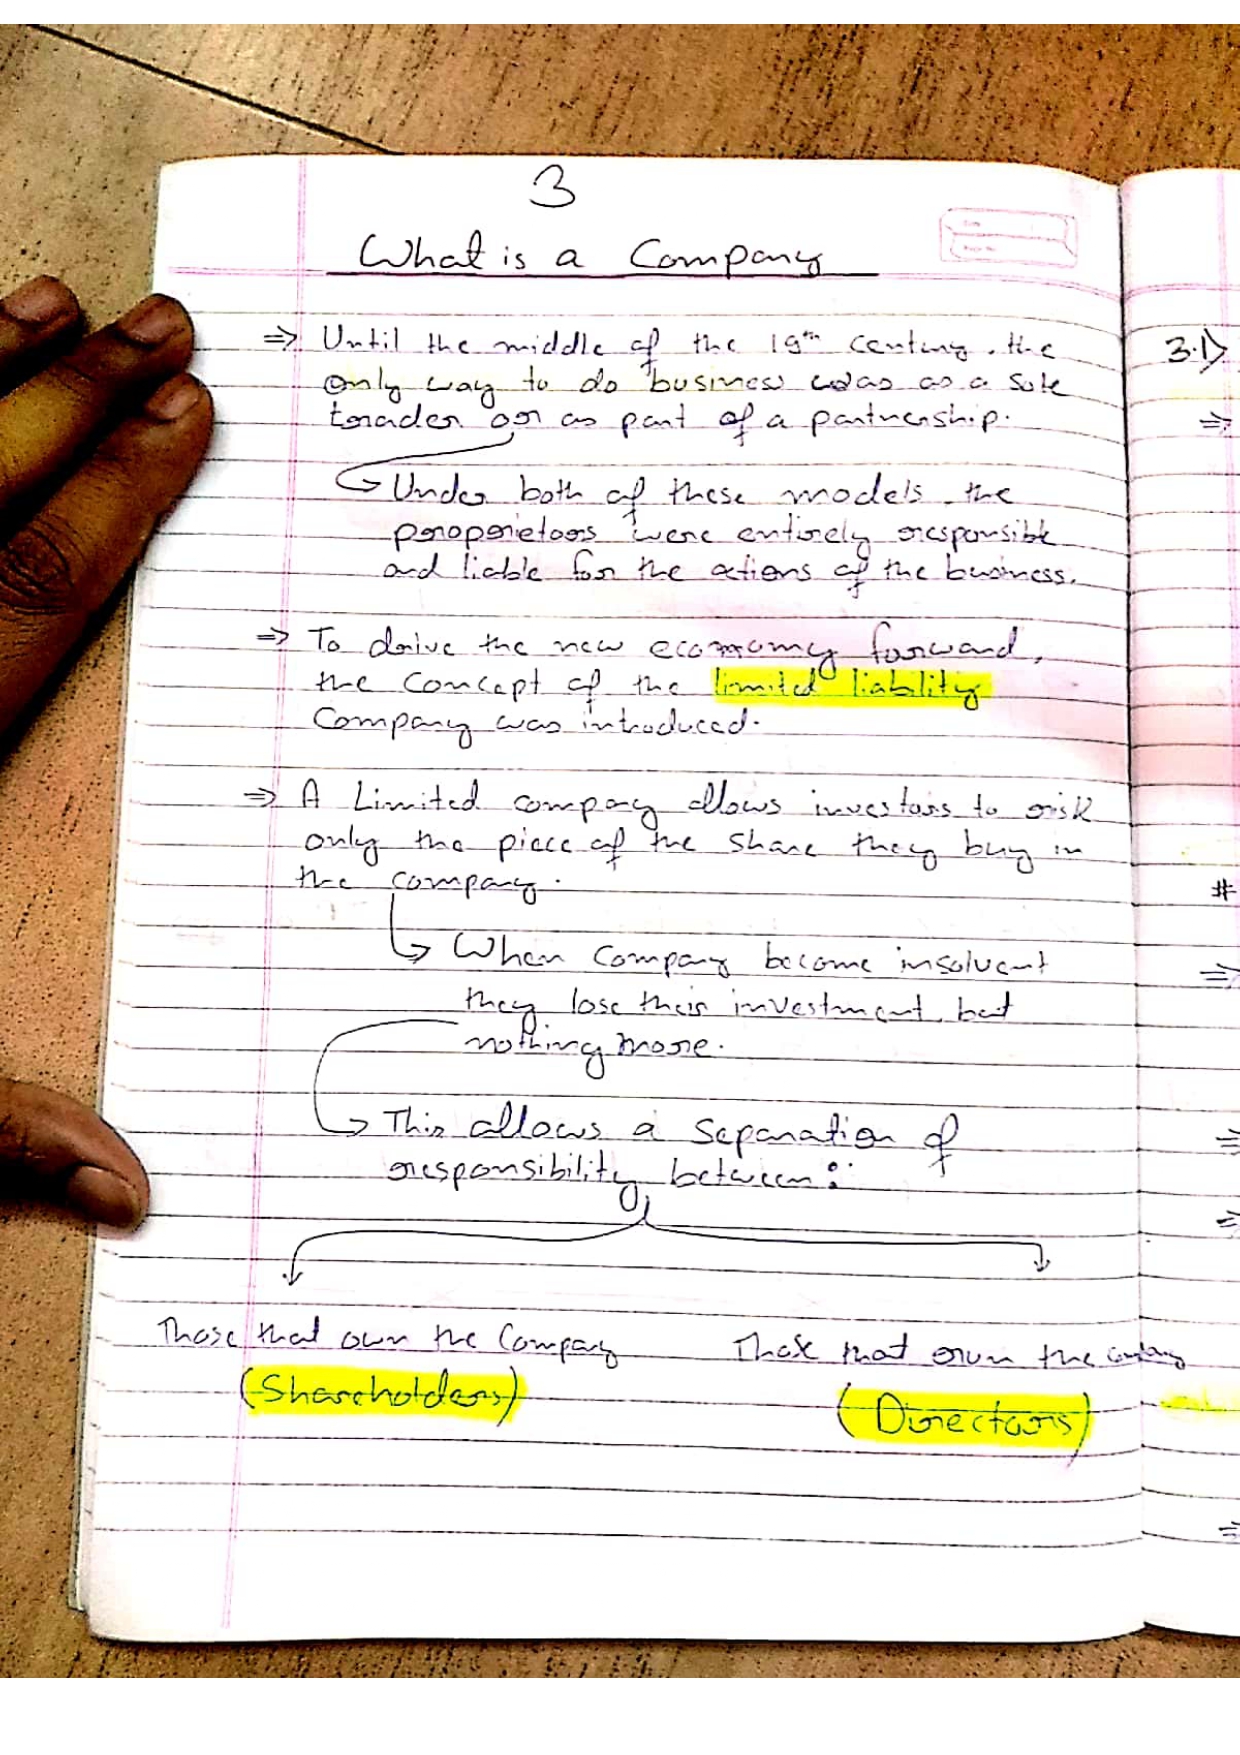 3
What is a Company
⇒ Until the middle of the 19th century, the
only way to do business was as a sole
trader or as part of a partnership.
↳ Under both of these models, the
proprietors were entirely responsible
and liable for the actions of the business.
⇒ To drive the new economy forward,
the concept of the limited liability
Company was introduced.
⇒ A Limited company allows investors to risk
only the piece of the share they buy in
the company.
↳ When Company become insolvent
they lose their investment, but
nothing more.
↳ This allows a separation of
responsibility between:
Those that own the Company
(Shareholders)
Those that own the company
(Directors)
3.1)
⇒
#
⇒
⇒
⇒
⇒